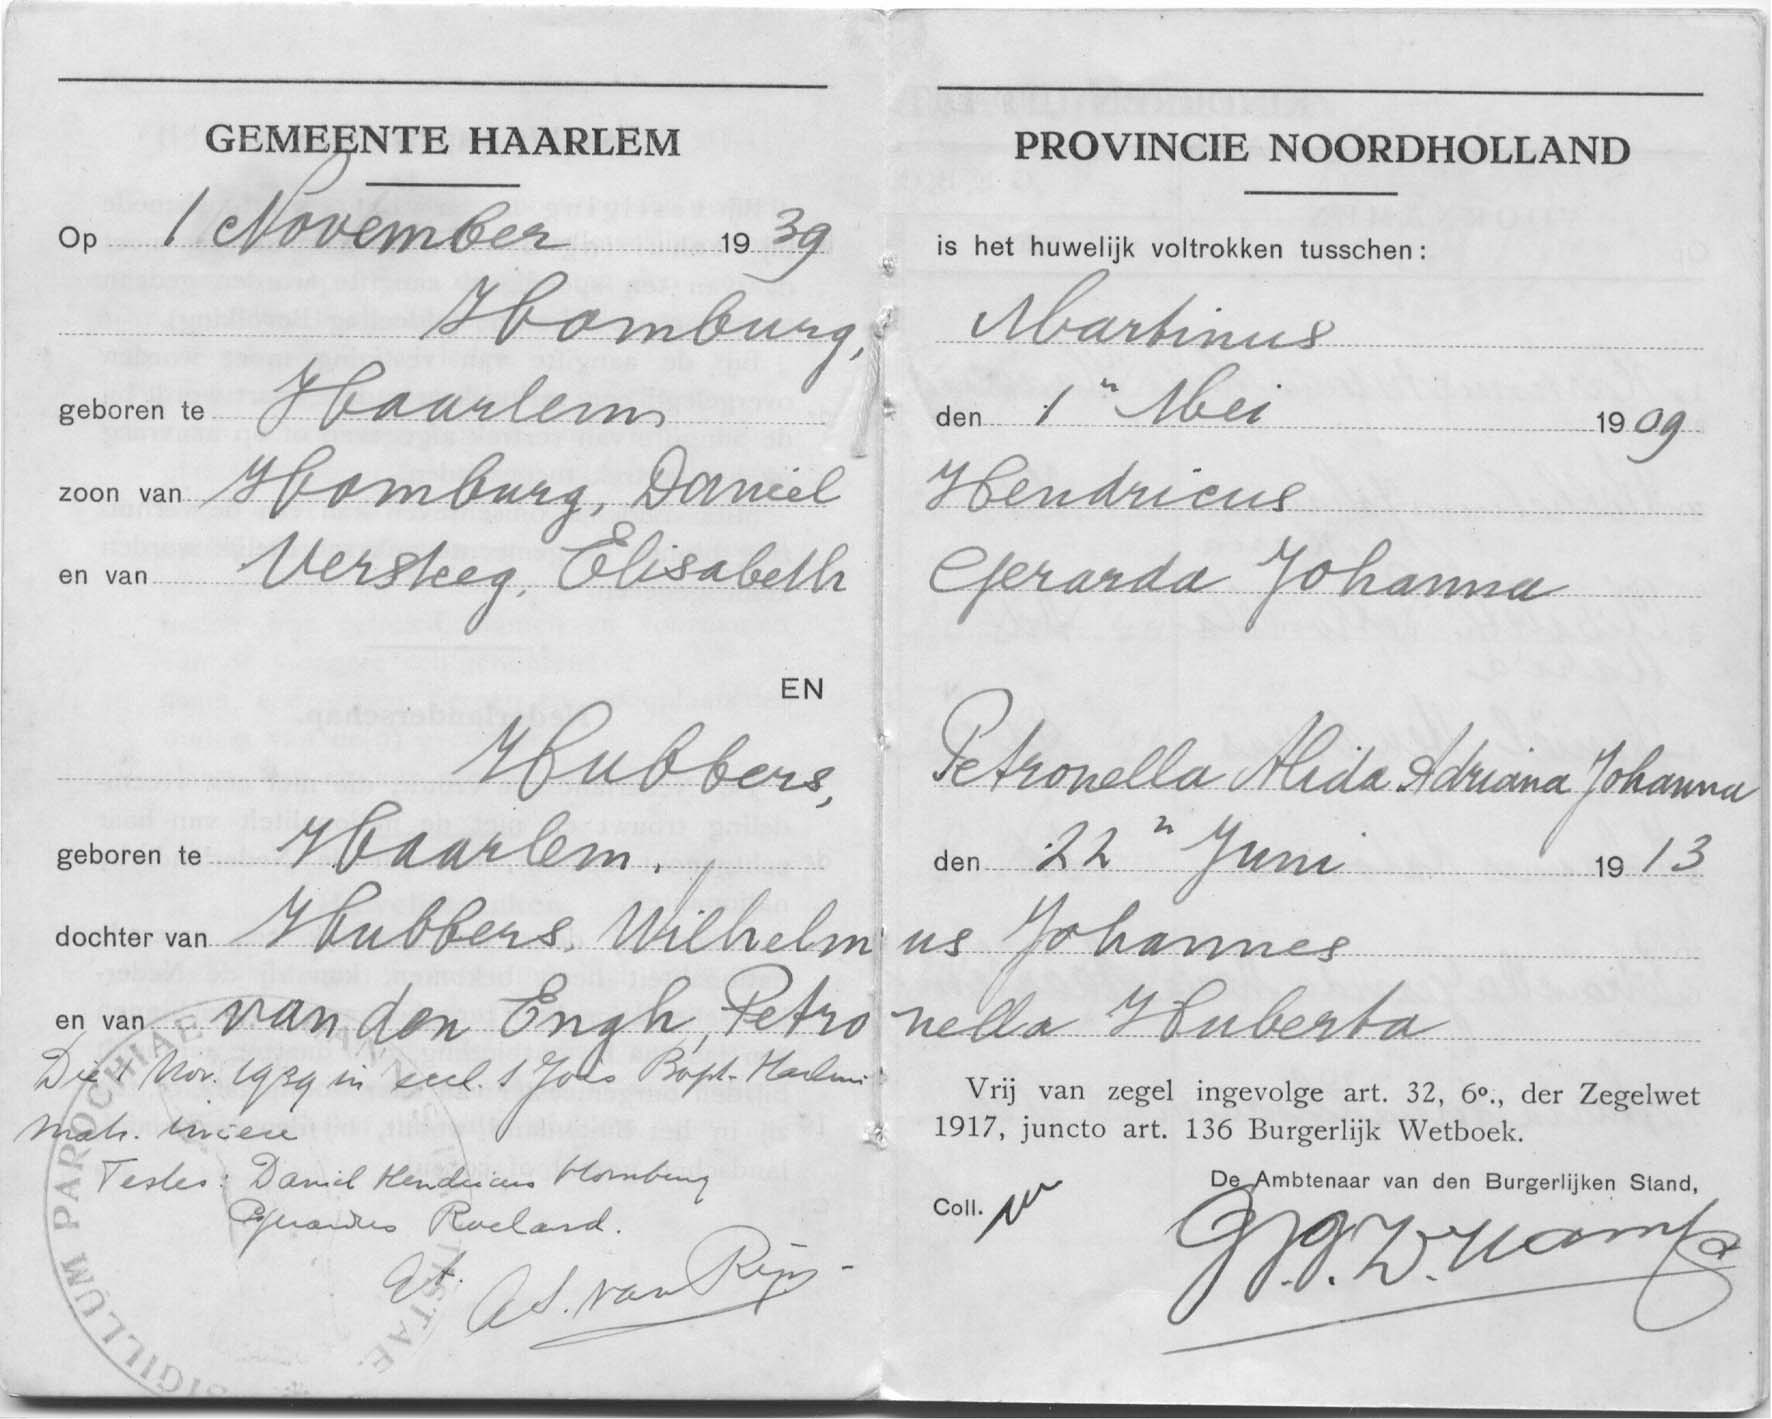 GEMEENTE HAARLEM
Op 1 November 1939
Homburg,
geboren te Haarlem
zoon van Homburg, Daniel
en van Versteeg, Elisabeth
EN
Hubbers,
geboren te Haarlem.
dochter van Hubbers, Wilhelm
en van van den Engh, Petro
Die 1 Nov. 1939 in eccl. S Jois Bapt. Harlemi
matr. iniere
Testes: Daniel Hendricus Homburg
Gerardus Roeland.
A. S. van Rijn
SIGILLUM PAROCHIAE
PROVINCIE NOORDHOLLAND
is het huwelijk voltrokken tusschen:
Martinus
den 1n Mei 1909
Hendricus
Gerarda Johanna
Petronella Alida Adriana Johanna
den 22n Juni 1913
us Johannes
nella Huberta
Vrij van zegel ingevolge art. 32, 6o., der Zegelwet
1917, juncto art. 136 Burgerlijk Wetboek.
De Ambtenaar van den Burgerlijken Stand,
Coll.